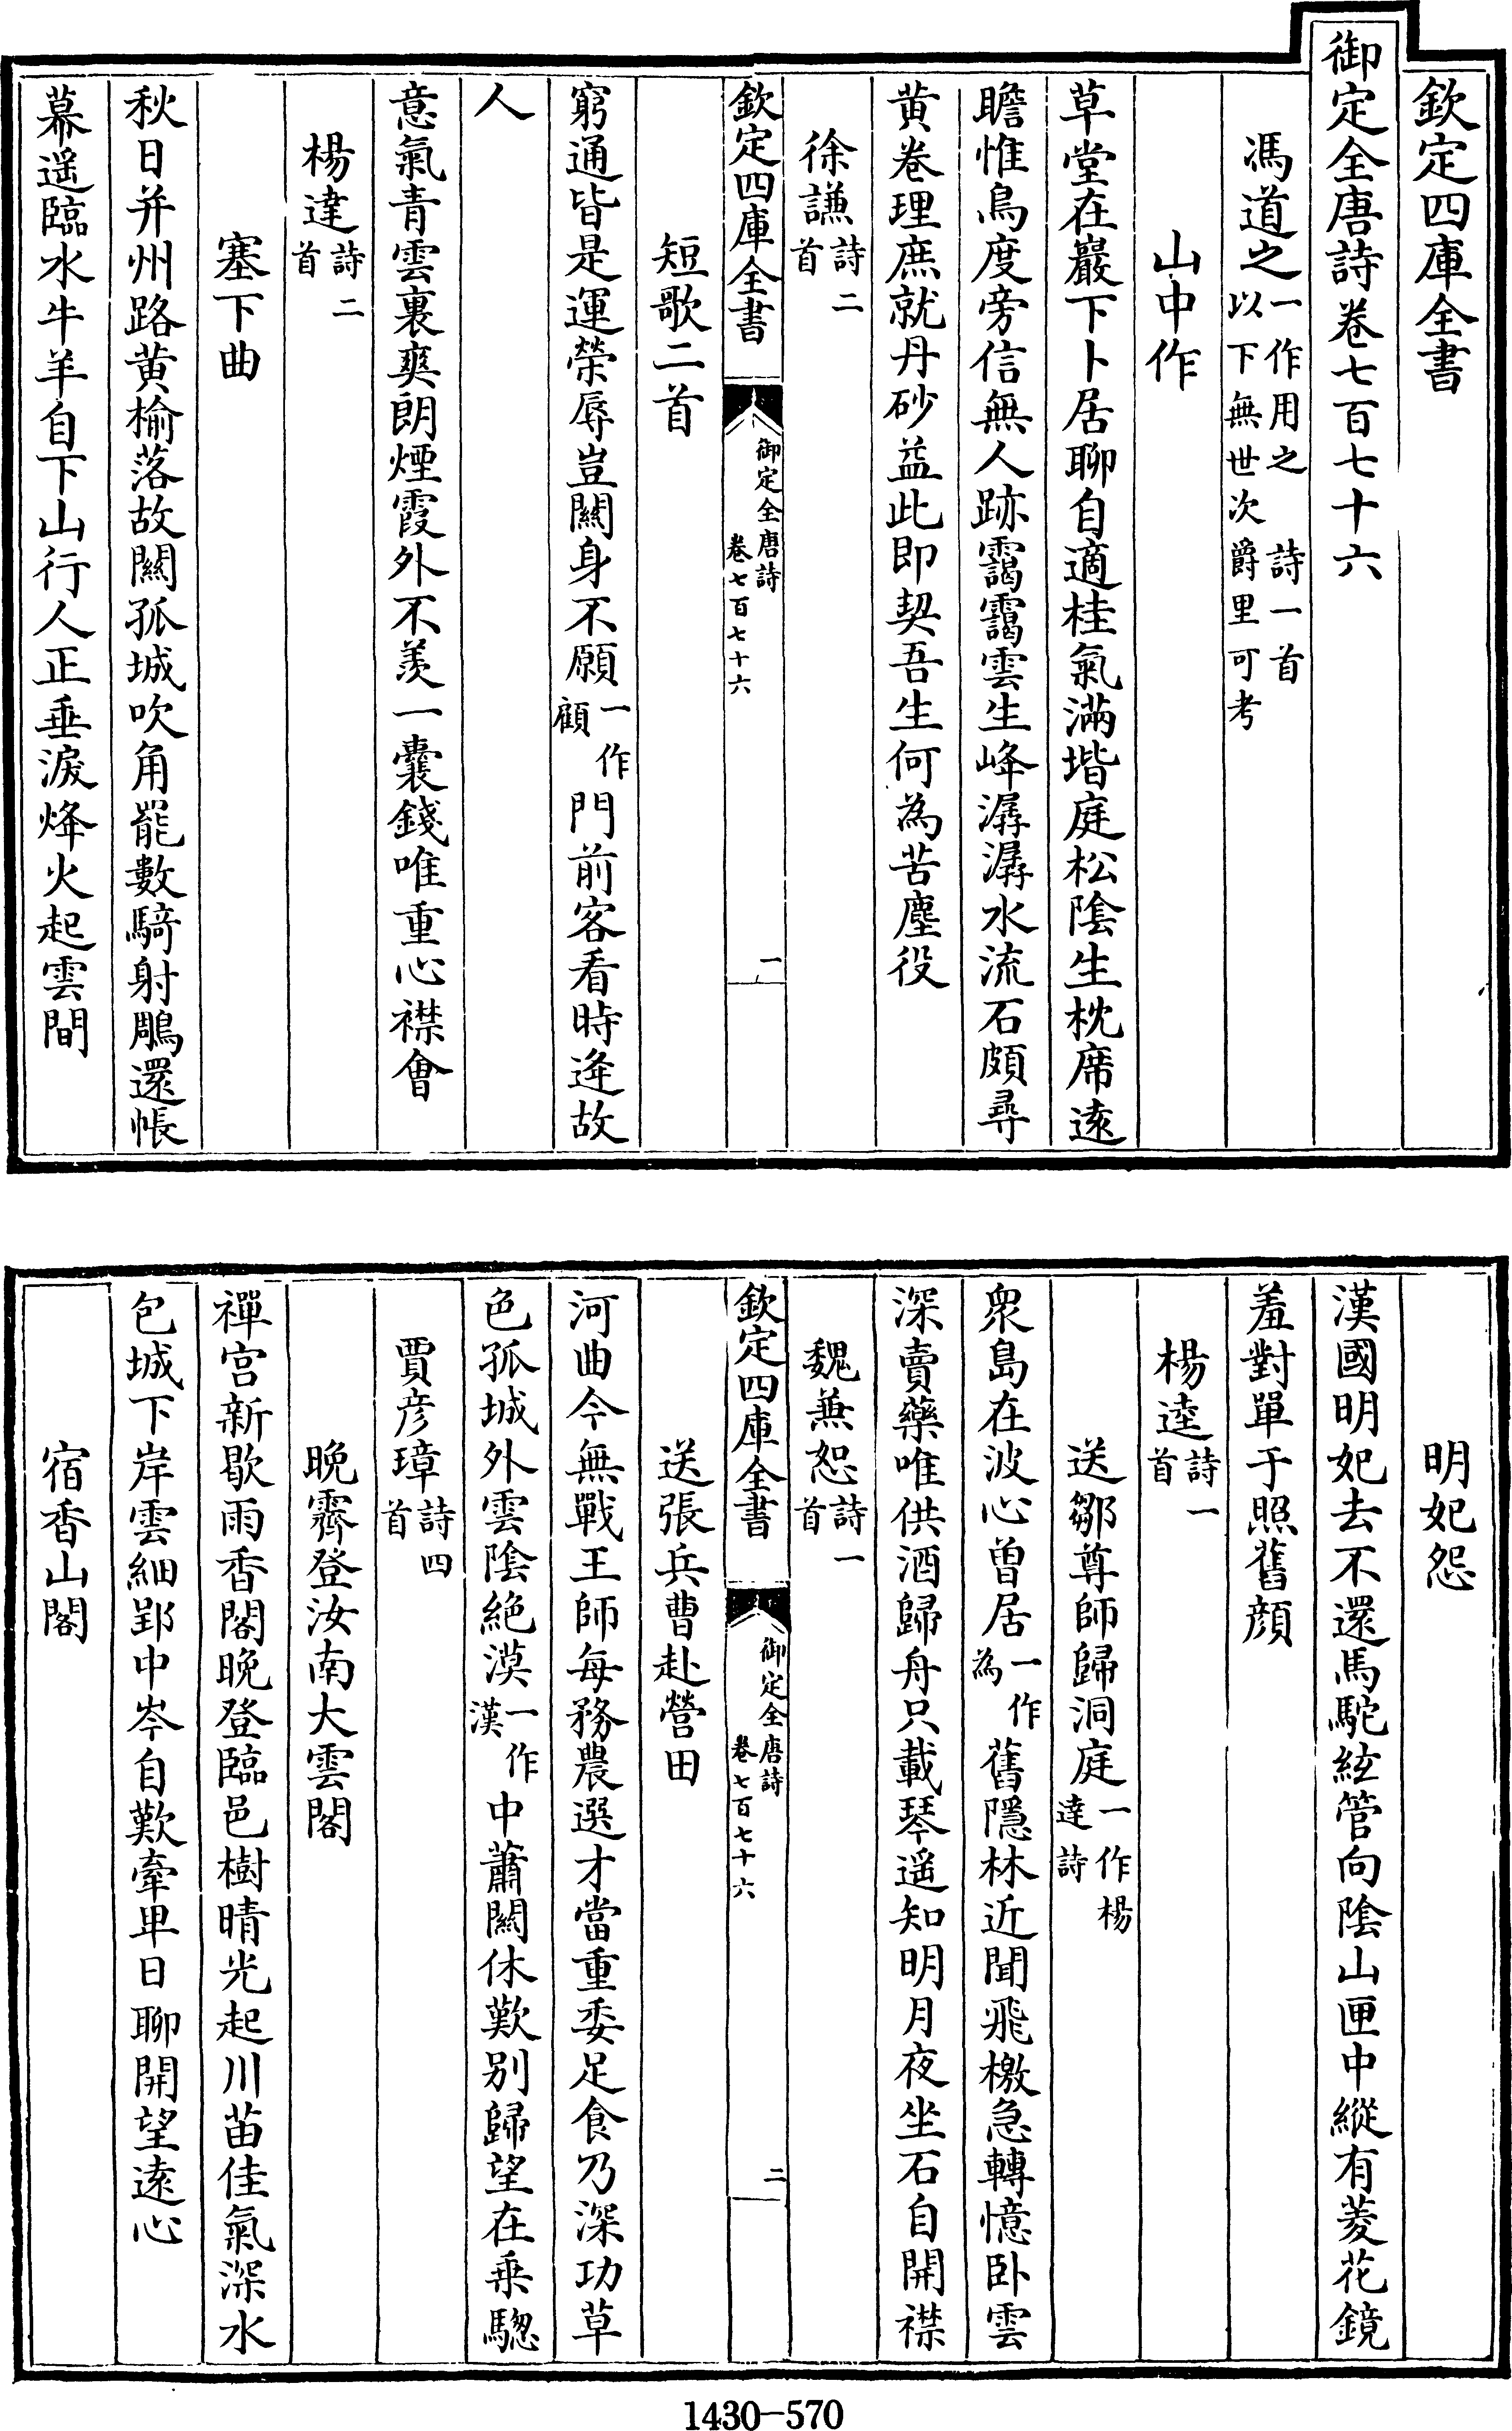 欽定四庫全書
御定全唐詩卷七百七十六
馮道之一作用之 詩一首以下無世次爵里可考
山中作
草堂在巖下卜居聊自適桂氣滿堦庭松陰生枕席遠
瞻惟鳥度旁信無人跡靄靄雲生峰潺潺水流石頗尋
黄卷理庶就丹砂益此即契吾生何為苦塵役
徐謙詩二首
欽定四庫全書 御定全唐詩卷七百七十六 一
短歌二首
窮通皆是運榮辱豈關身不願一作顧門前客看時逄故
人
意氣青雲裏爽朗煙霞外不羨一囊錢唯重心襟會
楊達詩二首
塞下曲
秋日并州路黄榆落故關孤城吹角罷數騎射鵰還帳
幕遥臨水牛羊自下山行人正垂淚烽火起雲間
明妃怨
漢國明妃去不還馬駝絃管向陰山匣中縱有菱花鏡
羞對單于照舊顔
楊逵詩一首
送鄒尊師歸洞庭一作楊達詩
衆島在波心曽居一作為舊隱林近聞飛檄急轉憶卧雲
深賣藥唯供酒歸舟只載琴遥知明月夜坐石自開襟
魏兼恕詩一首
欽定四庫全書 御定全唐詩卷七百七十六 二
送張兵曹赴營田
河曲今無戰王師每務農選才當重委足食乃深功草
色孤城外雲陰絶漠一作漢中蕭關休歎别歸望在乗驄
賈彦璋詩四首
晚霽登汝南大雲閣
禪宫新歇雨香閣晚登臨邑樹晴光起川苗佳氣深水
包城下岸雲細郢中岑自歎牽卑日聊開望遠心
宿香山閣
1430-570